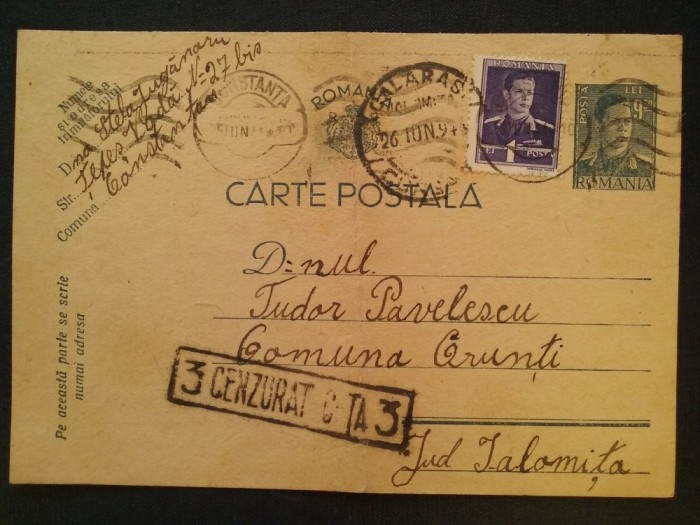 Numele
și adresa
trimițătorului
D-na Stela Jugănaru
Str. Țepeș Vodă N= 27 bis
Comuna Constanța
CONSTANȚA
IUN
ROMANIA
CALARASI
26 IUN. 94
ROMANIA
LEI
1
POSTA
POSTA
LEI
9
ROMANIA
CARTE POSTALA
D=nul.
Tudor Pavelescu
Comuna Crunți
Jud Ialomița
3 CENZURAT C-TA 3
Pe această parte se scrie
numai adresa